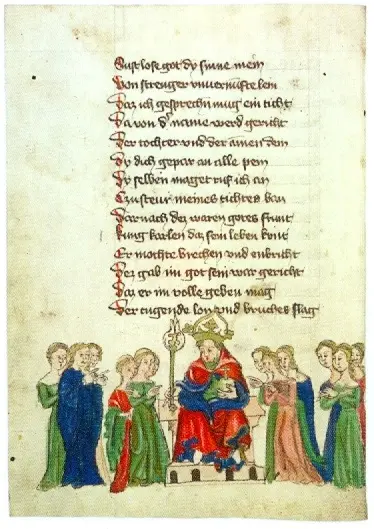 Sust lose got dy sinne mein
Von strenger unvernufte bein
Daz ich gesprechen mug ein ticht
Da von d' name werd gericht
Der tochter vnd der amen dem
Dy dich gepar an alle pein
Dy selben maget ruf ich an
Czu steur meines tichtes ban
Dar nach dez waren gotes frunt
kung karlen daz sein leben kunt
Er mochte brechen vnd enbricht
Dez gab im got sein war gericht
Daz er im volle geben mag
Der tugende lon vnd bruches slag